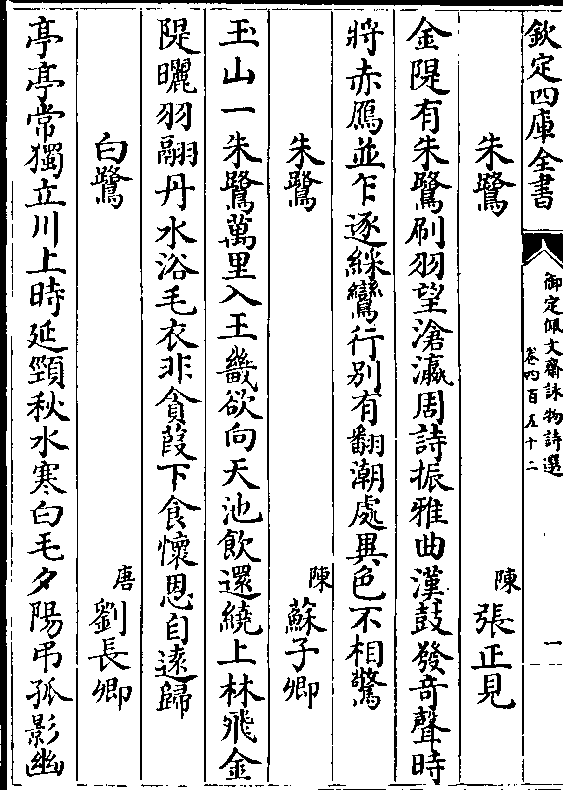 欽定四庫全書
御定佩文齋詠物詩選
卷四百五十二
一
朱鷺
陳
張正見
金隄有朱鷺刷羽望滄瀛周詩振雅曲漢鼓發竒聲時
將赤鴈並乍逐綵鸞行别有翻潮處異色不相驚
朱鷺
陳
蘇子卿
玉山一朱鷺萬里入王畿欲向天池飲還繞上林飛金
隄曬羽翮丹水浴毛衣非貪葭下食懷恩自逺歸
白鷺
唐
劉長卿
亭亭常獨立川上時延頸秋水寒白毛夕陽弔孤影幽